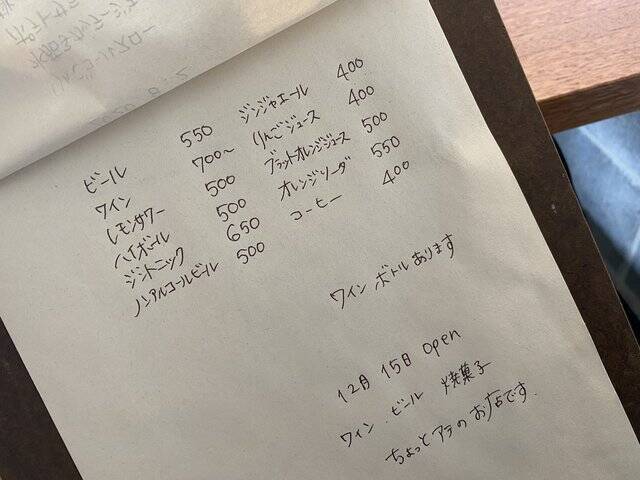 ビール 550
ワイン 700〜
レモンサワー 500
ハイボール 500
ジントニック 650
ノンアルコールビール 500
ジンジャエール 400
りんごジュース 400
ブラットオレンジジュース 500
オレンジソーダ 550
コーヒー 400
ワイン ボトルあります
12月 15日 open
ワイン . ビール 焼菓子
ちょっとアテのお店です.